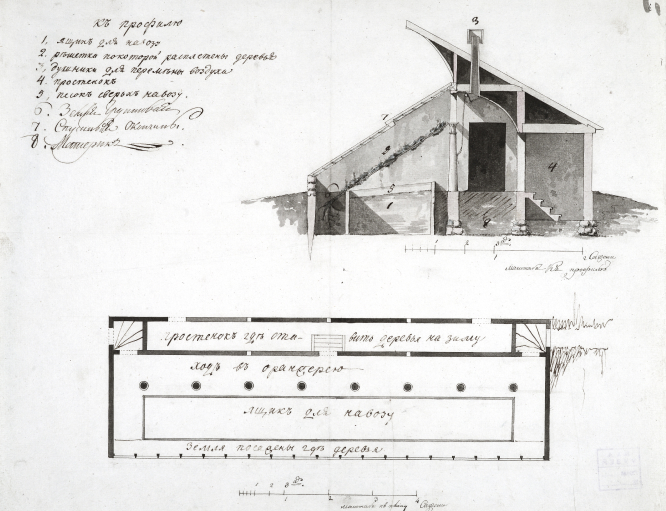 къ профилю
1. ящикъ для навозо
2. рѣшетка покоторой распластены деревья
3, духники для перемѣны воздуха
4 простенокъ
5, песокъ сверьхъ навозу.
6. Земля
7.
8.
3
7
2
5
4
1
8
1 2 3
1 2 Сажени
масштабъ къ профилю
простенокъ гдѣ
деревья на зиму
ходъ въ оранжерею
ящикъ для навозу
Земля посажены гдѣ деревья
1 2 3
1 2 3 4
масштабъ къ плану Сажени